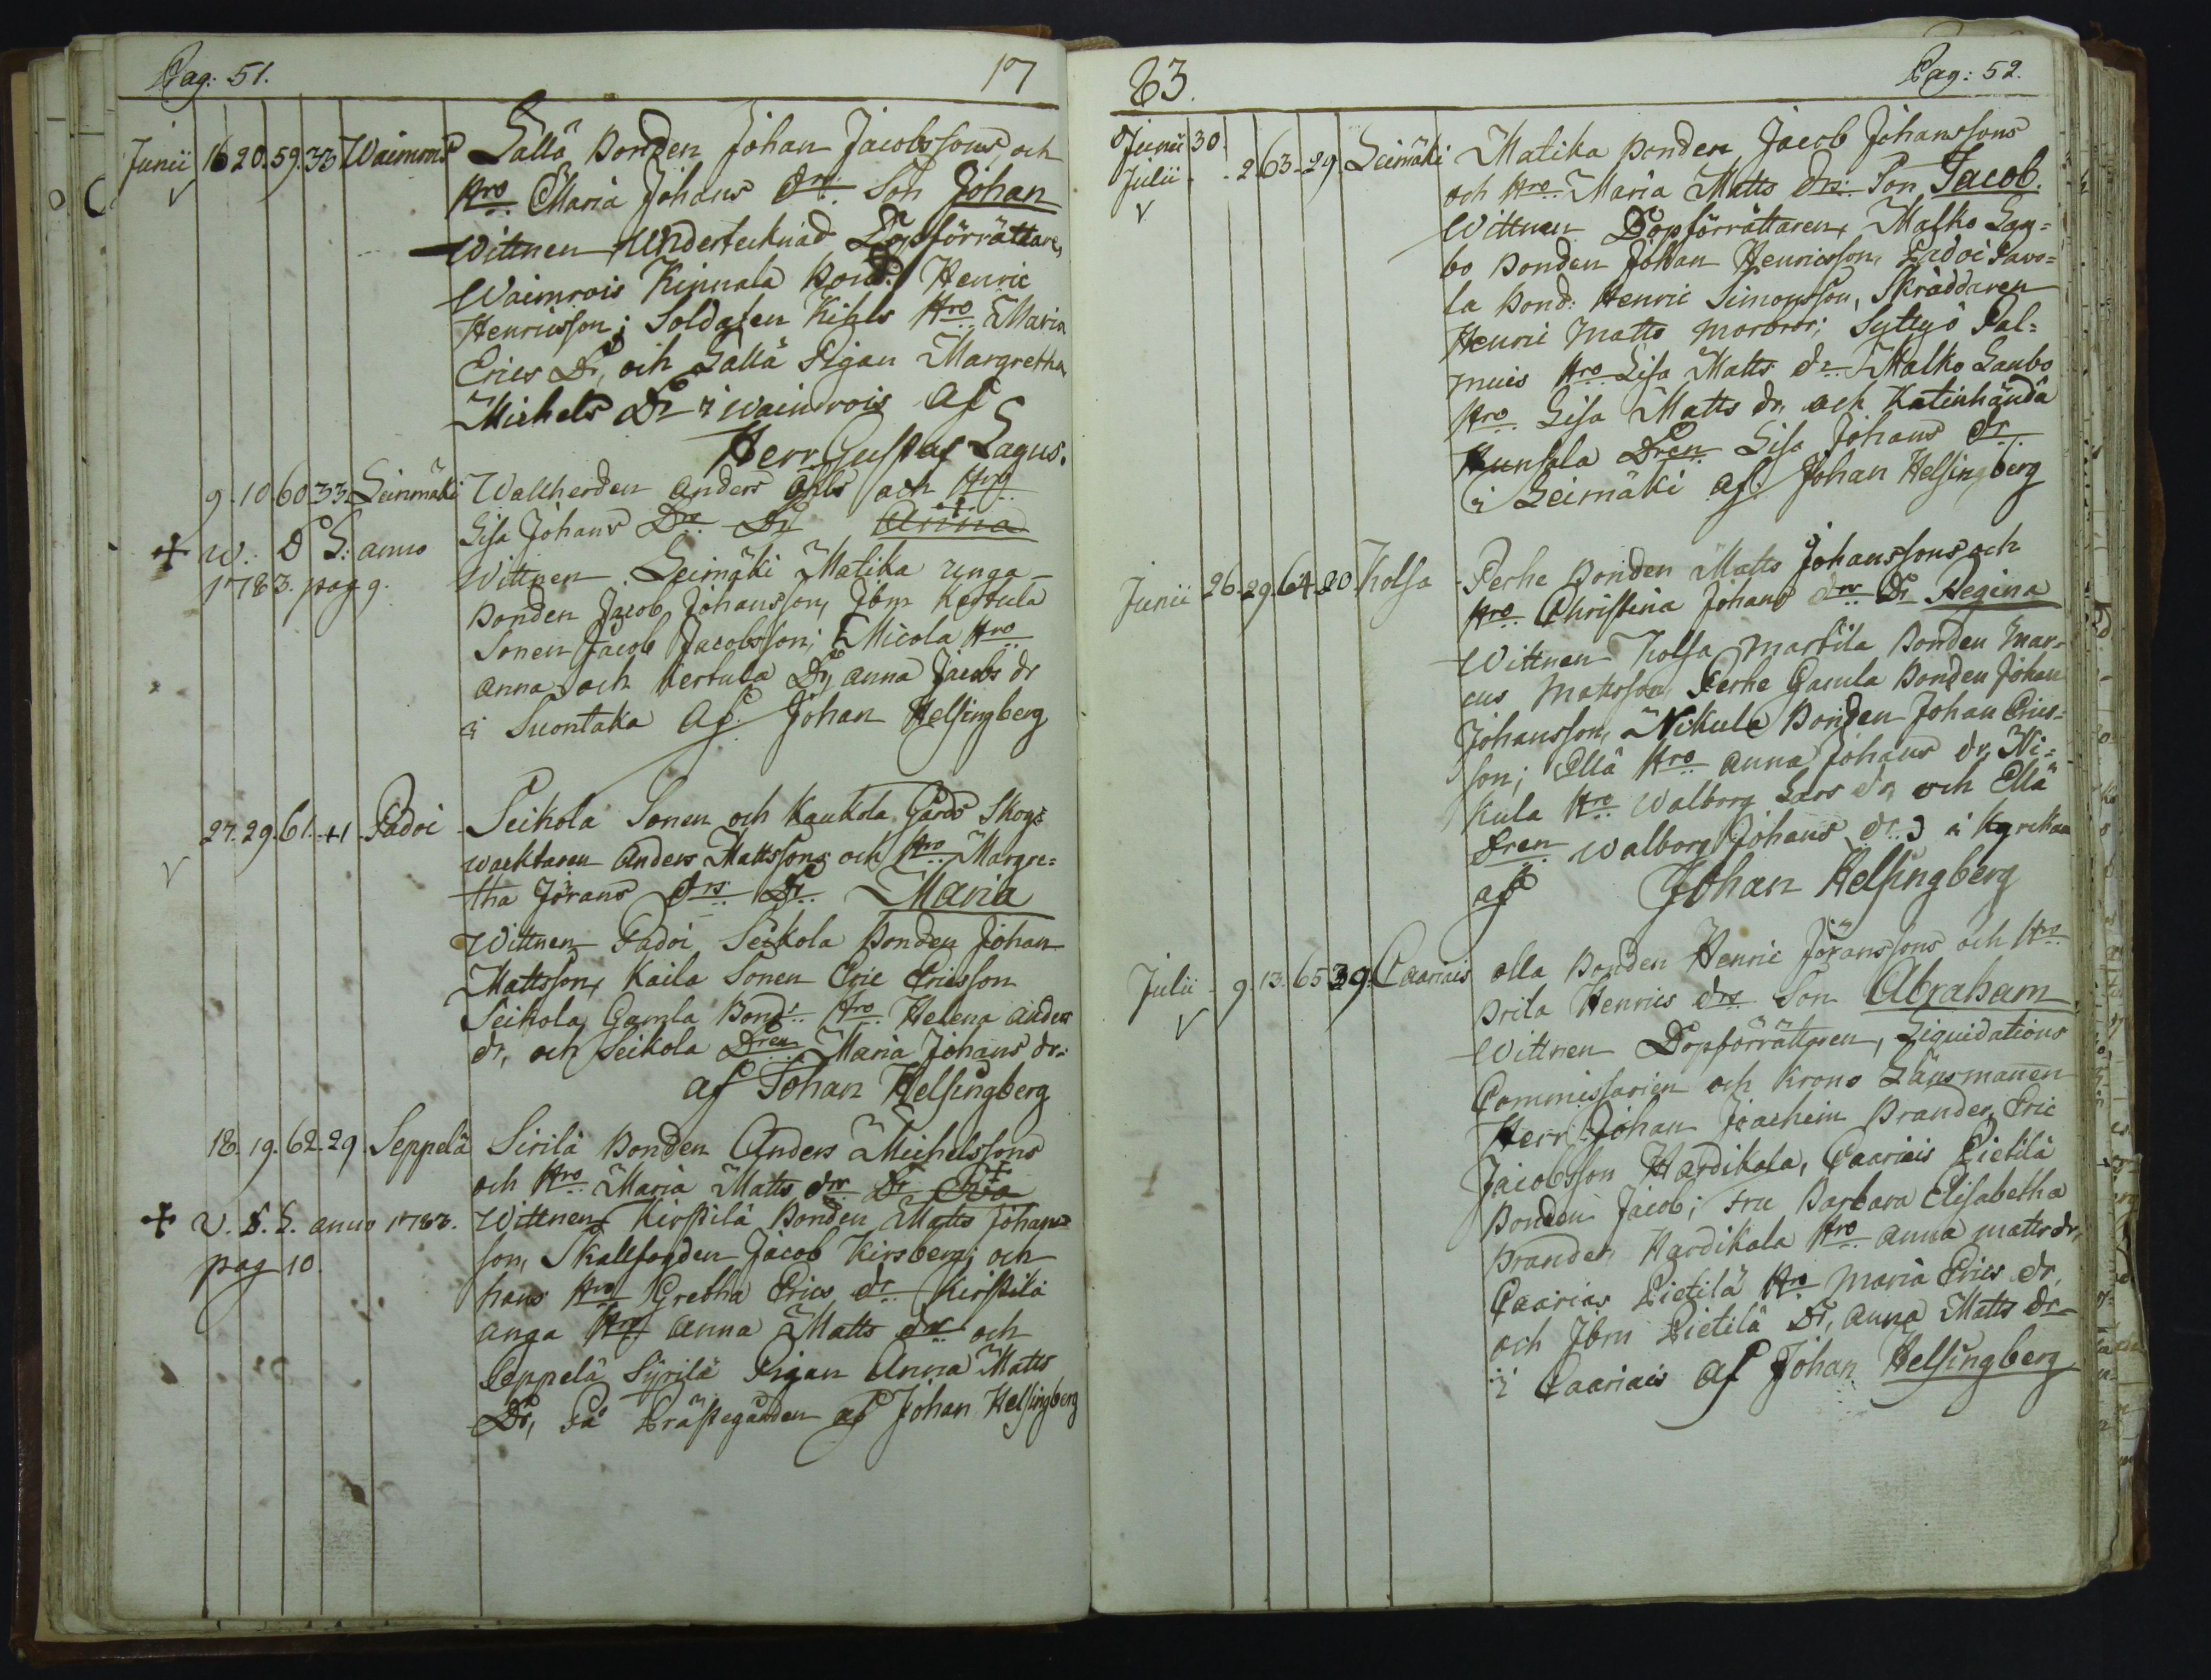 Pag: 51. 17
Junii 16 20. 59. 33 Waimrois Lallä Bonden Johan Jacobssons och
Hro Maria Johans Drs Son Johan
Wittnen Undertecknad Döpförrättare,
Waimrois Kinnala Bond: Henric
Henricsson; Soldaten Kihls Hro Maria
Erics Dr, och Lallä Pigan Margretha
Michels Dr i Waimrois af
Herr Gustaf Lagus.
9. 10 60 33. Leinmäki Wallherden Anders och Hro
Lisa Johans Drs Dr Anna
+ W. D L: anno
1783. pag 9.
Wittnen Leimäki Matika unga
Bonden Jacob Johansson, Ibm Kertula
Sonen Jacob Jacobsson; Micola Hro
Anna och Kertula Dr, Anna Jacobs dr
i Suontaka af Johan Helsingberg
27. 29. 61. 41. Padoi Seikola Sonen och Kaukola Gårds Skogs=
wacktaren Anders Mattssons och Hro Margre=
tha Jörans Drs Dr Maria
Wittnen Padoi Seikola Bonden Johan
Mattsson, Kaila Sonen Eric Ericsson
Seikola Gamla Bond: Hro Helena Anders
dr, och Seikola Dren Maria Johans dr.
af Johan Helsingberg
18. 19. 62. 29. Seppelä Sirilä Bonden Anders Michelssons
och Hro Maria Matts drs Dr Eva
+ V. D. L. anno 1783.
pag 10
Wittnen Kirstilä Bonden Matts Johans=
son, Skallfogden Jacob Kirsberg; och
hans Hro Gretha Erics dr Kirstilä
unga Hro Anna Matts dr och
Seppelä Syrilä Pigan Anna Matts
Dr, På Prästegården af Johan Helsingberg
83. Pag: 52.
Junii 30.
Julii 2. 63. 29. Leimäki Matika Bonden Jacob Johanssons
och Hro Maria Matts Drs Son Jacob.
Wittnen Döpförrättaren, Malko Lau=
bo Bonden Johan Henricsson, Padoi Pavo=
la Bond: Henric Simonsson, Skräddaren
Henric Matts morbror; Syttyö Pal=
muis Hro Lisa Matts dr Malko Laubo
Hro Lisa Matts dr, och Katinhändä
Huntala Dren Lisa Johans dr
i Leimäki af Johan Helsingberg
Junii 26. 29. 64. 20. Kolsa Perhe Bonden Matts Johanssons och
Hro Christina Johans drs Dr Regina
Wittnen Kolsa Martila Bonden Mar=
cus Mattsson, Perhe Gamla Bonden Johan
Johansson, Nikula Bonden Johan Erics=
son; Ellä Hro Anna Johans dr, Ni=
kula Hro Walborg Lars dr, och Ellä
Dren Walborg Johans dr. i Kyrckan
af Johan Helsingberg
Julii 9. 13. 65 39. Caariais Olla Bonden Henric Jöranssons och Hro
Brita Henrics drs Son Abraham
Wittnen Döpförrättaren, Liquidations
Commissarien och Krono Länsmannen
Herr Johan Joachim Brander, Eric
Jacobsson Hardikala, Caariais Pietilä
Bonden Jacob; Fru Barbara Elisabetha
Brander, Hardikala Hro Anna Matts dr,
Caariais Pietilä Hro Maria Erics dr,
och Ibm Pietilä Dr, Anna Matts dr
i Caariais af Johan Helsingberg